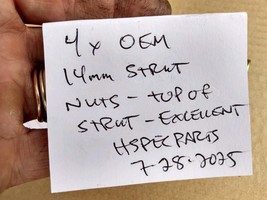 4x OEM
14mm STRUT
NUTS - TOP OF
STRUT - EXCELLENT
HSPECPARTS
7-28-2025